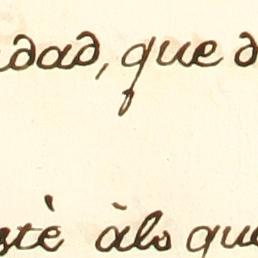 dad, que d
stè àlo que